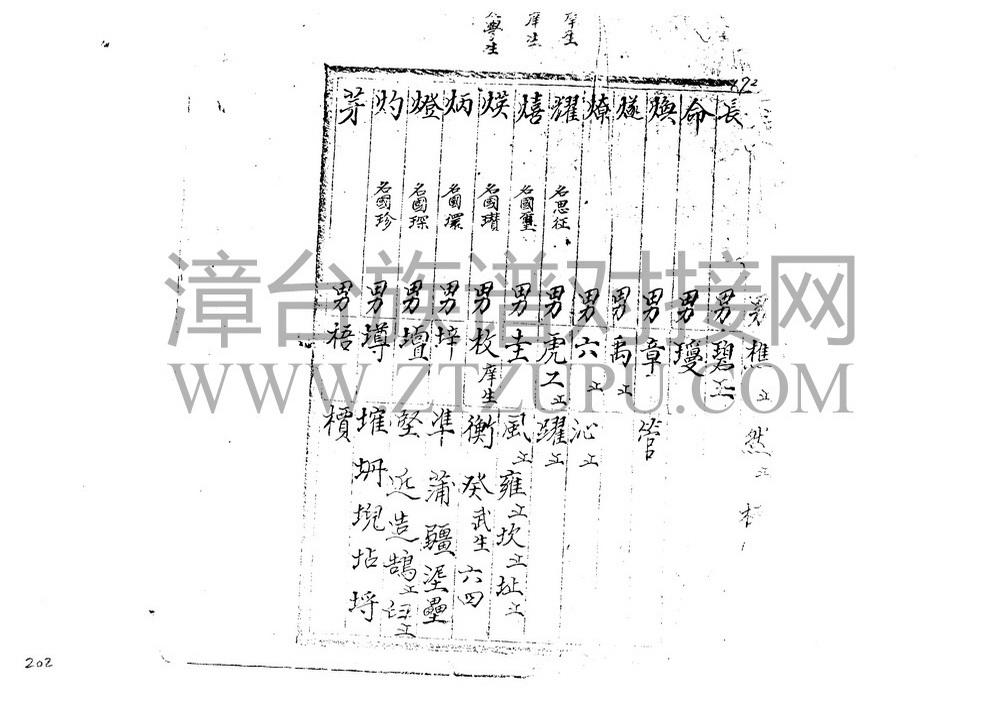 庠生
庠生
庠生
男樵㐀然
長 男碧
命 男瓊
煥 男章管
燧 男禹
燎 男六沁
耀 名思征 男虎躍
燨 名國璽 男圭風雍坎址
煐 名國瓚 男枚庠生衡癸武生六四
炳 名國環 男坪準蒲疆渥壘
燈 名國琛 男壇堅近造鵠
灼 名國珍 男壿摧坍堄坫埒
芽 男梧檟
漳台族谱对接网
WWW.ZTZUPU.COM
202